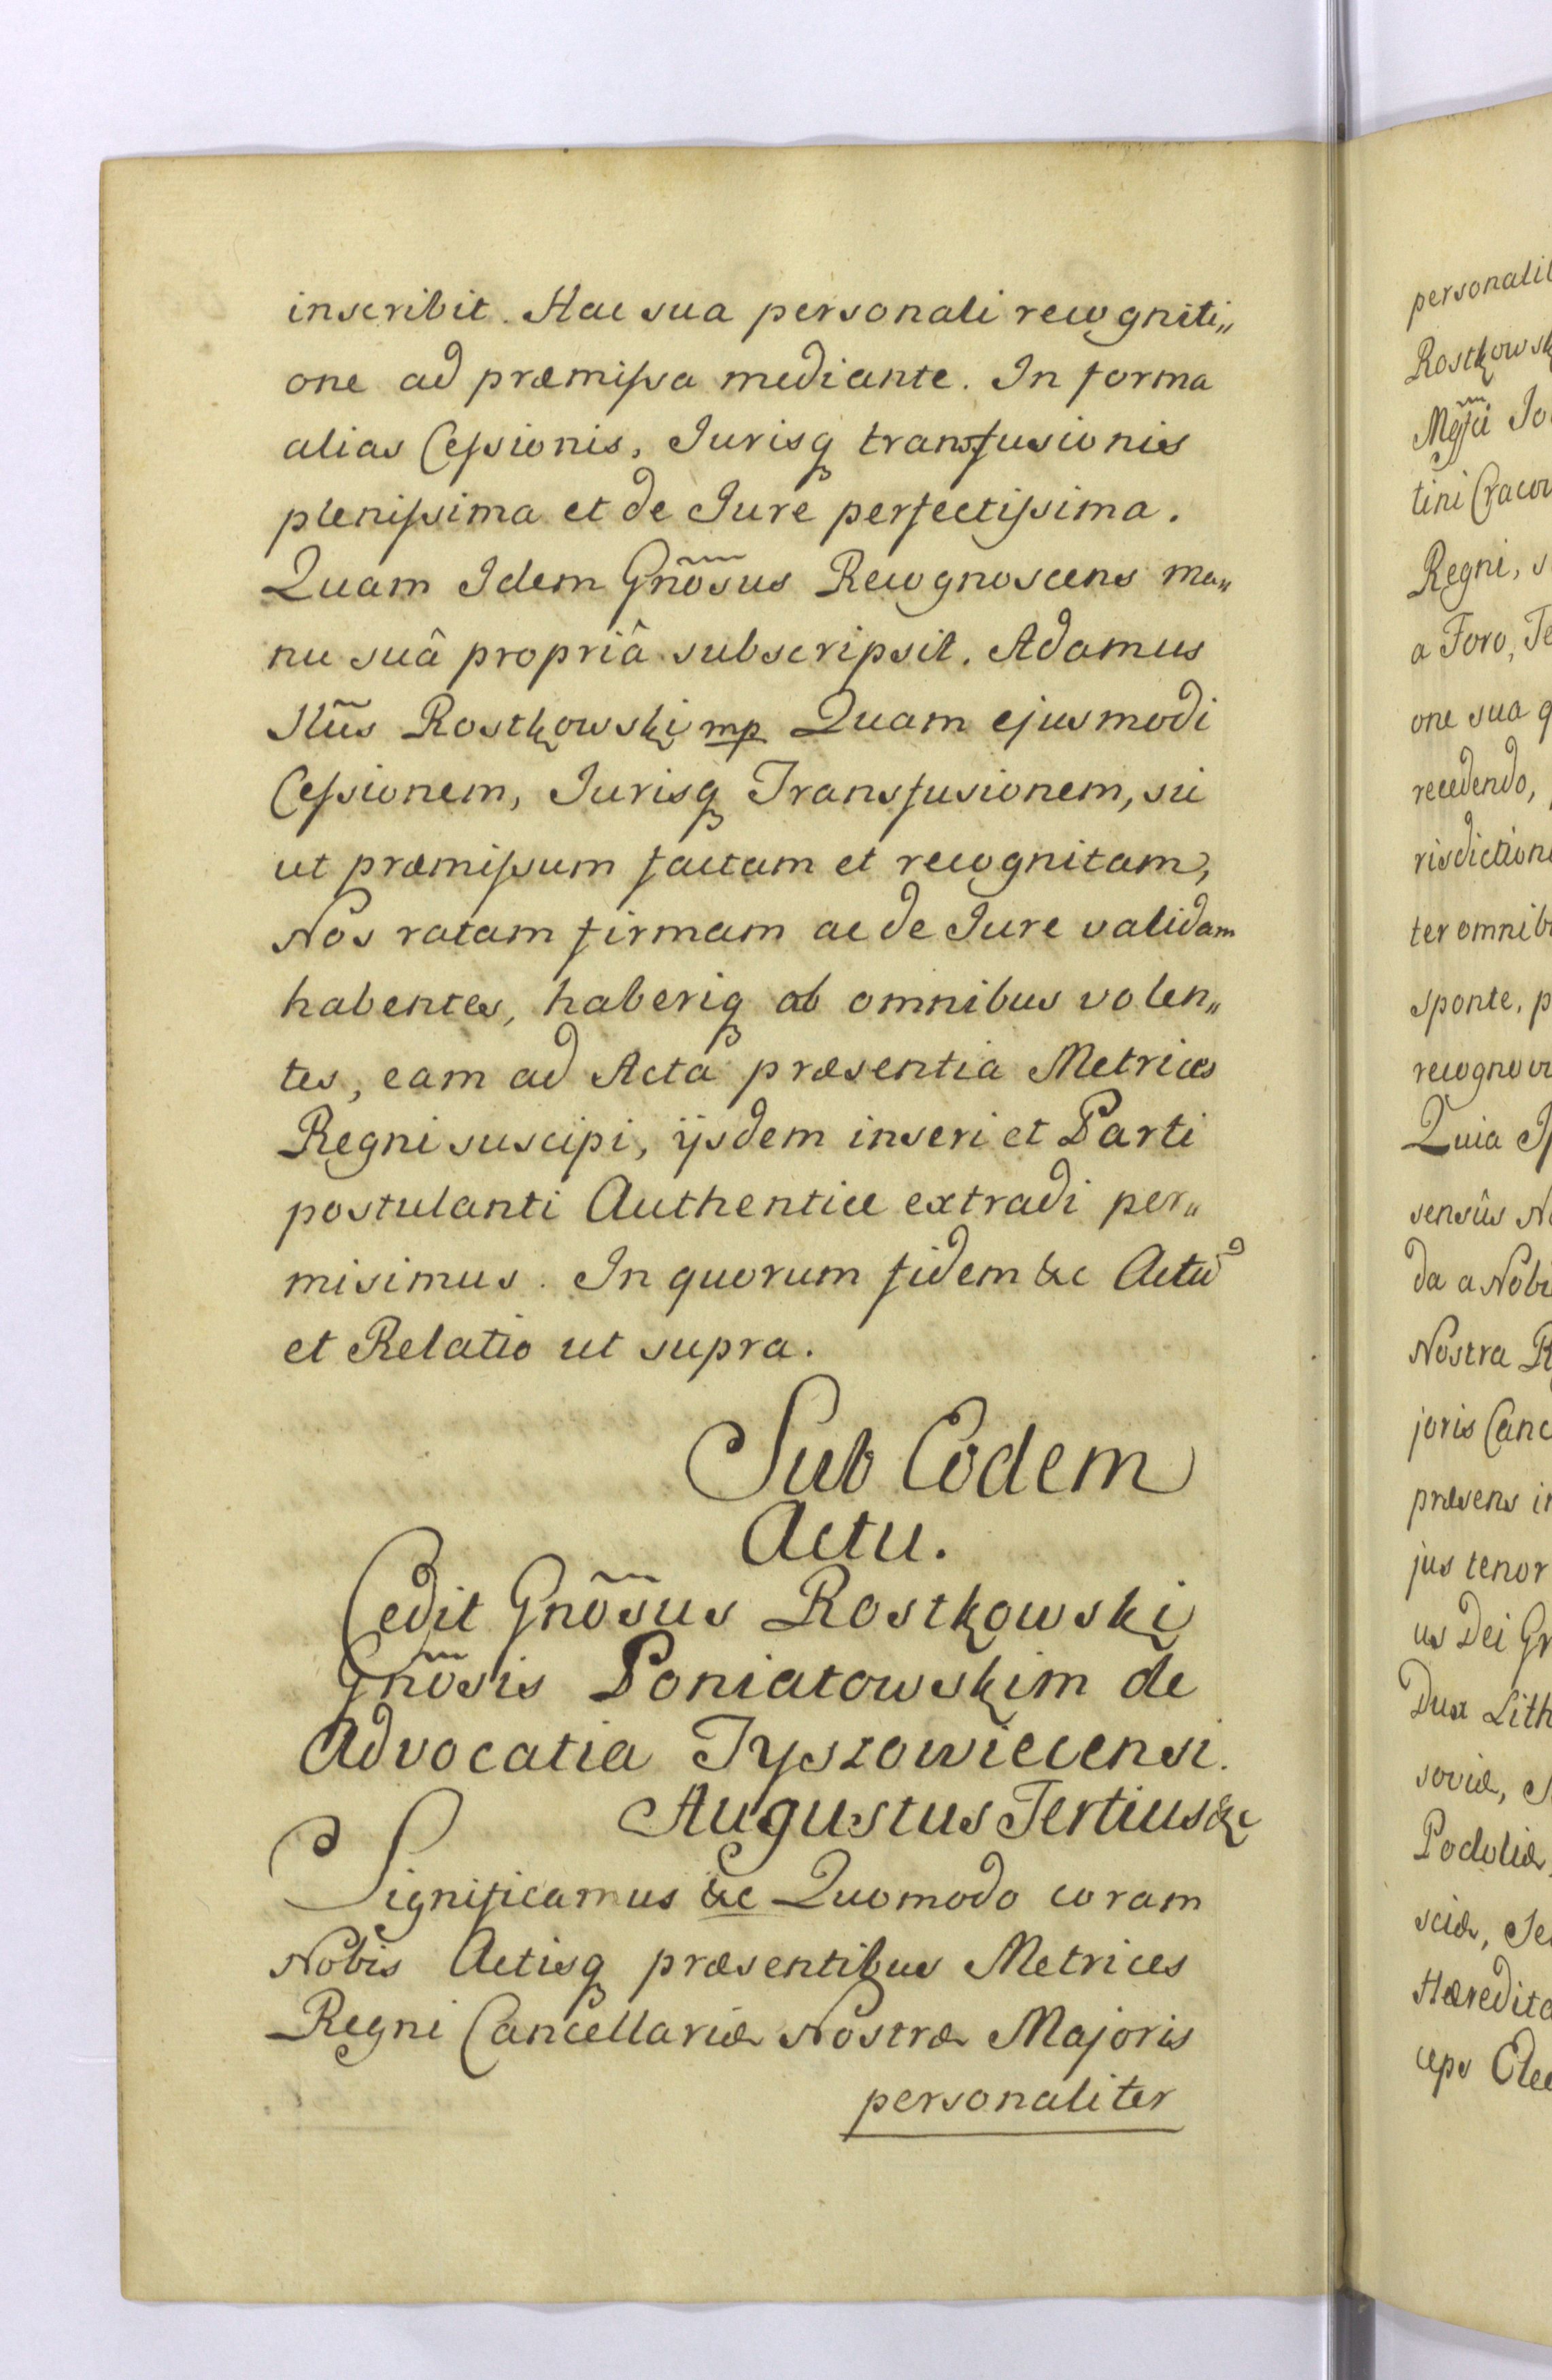 inscribit. Hac sua personali recogniti„
one ad præmissa mediante. In forma
alias Cessionis, Jurisq transfusionis
plenissima et de Jure perfectissima.
Quam Idem Gnõsus Recognoscens ma„
nu suâ propriâ subscripsit. Adamus
Rostkowski mp Quam ejusmodi
Cessionem, Jurisq Transfusionem, sic
ut præmissum factam et recognitam,
Nos ratam firmam ac de Jure validam
habentes, haberiq ab omnibus volen„
tes, eam ad Acta præsentia Metrices
Regni suscipi, ijsdem inseri et Parti
postulanti Authentice extradi per„
misimus. In quorum fidem &c Actũ
et Relatio ut supra.
Sub Eodem
Actu.
Cedit Gnõsus Rostkowski
Gnõsis Poniatowskim de
Advocatia Tyszowiecensi.
Augustus Tertius &c
Significamus &c Quomodo coram
Nobis Actisq præsentibus Metrices
Regni Cancellariæ Nostræ Majoris
personaliter
Rostkowsk
Regni, s
a Foro, Te
one sua q
recedendo,
risdictione
ter omnib
sponte, p
recognovi
Quia Ip
sensûs No
da a Nobi
Nostra R
joris Canc
præsens in
jus tenor
us Dei Gr
Dux Lith
soviæ, S
Podoliæ,
sciæ, Se
Hæredita
ceps Elec